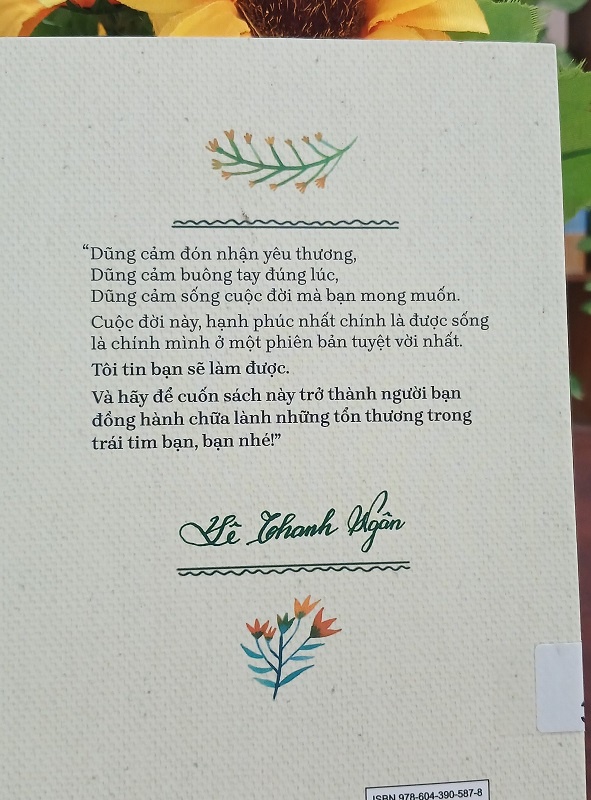 “Dũng cảm đón nhận yêu thương,
Dũng cảm buông tay đúng lúc,
Dũng cảm sống cuộc đời mà bạn mong muốn.
Cuộc đời này, hạnh phúc nhất chính là được sống
là chính mình ở một phiên bản tuyệt vời nhất.
Tôi tin bạn sẽ làm được.
Và hãy để cuốn sách này trở thành người bạn
đồng hành chữa lành những tổn thương trong
trái tim bạn, bạn nhé!”
Thanh Ngân
ISBN 978-604-390-587-8